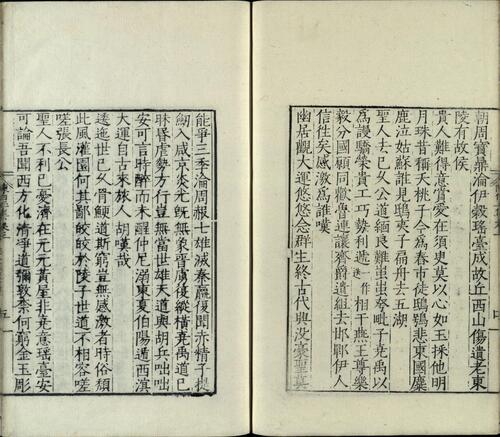 朝周寶鼎淪伊穀瑤臺成故丘西山傷遺老東
陵有故侯
貴人難得意賞愛在須臾莫以心如玉探他明
月珠昔稱夭桃子今爲舂市徒鴟鴞悲東國麋
鹿泣姑蘇誰見鴟夷子扁舟去五湖
聖人去已久公道緬良難蚩蚩夸毗子堯禹以
爲謾驕榮貴工巧勢利遞相干燕王尊樂
毅分國願同歡魯連讓齊爵遺組去邯鄲伊人
信往矣感激爲誰嘆
幽居觀大運悠悠念群生終古代興没豪聖莫
能爭三季淪周赧七雄滅秦嬴復聞赤精子提
劒入咸京炎光旣無象晉虜復縱橫堯禹道已
昧昏虐勢方行豈無當世雄天道與胡兵咄咄
安可言時醉而未醒仲尼溺東夏伯陽遁西溟
大運自古來旅人胡嘆哉
逶迤世已久骨鯁道斯窮豈無感激者時俗頹
此風灌園何其鄙皎皎於陵子世道不相容嗟
嗟張長公
聖人不利己憂濟在元元黃屋非堯意瑤臺安
可論吾聞西方化清淨道彌敦奈何窮金玉彫